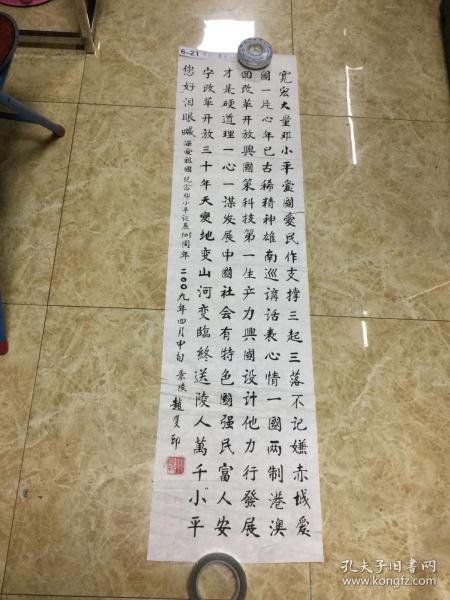 6-21
宽宏大量邓小平爱国爱民作支撑三起三落不记嫌赤城爱
國一片心年已古稀精神雄南巡講话表心情一國两制港澳
回改革开放興國策科技第一生产力興國设计他力行發展
才是硬道理一心一谋发展中國社会有特色國强民富人安
宁改革开放三十年天变地变山河变臨終送陵人萬千小平
您好泪眼喊深爱祖國纪念邓小平诞辰105周年 二00九年四月中旬 景陵 趙 印
孔夫子旧书网
www.kongfz.com